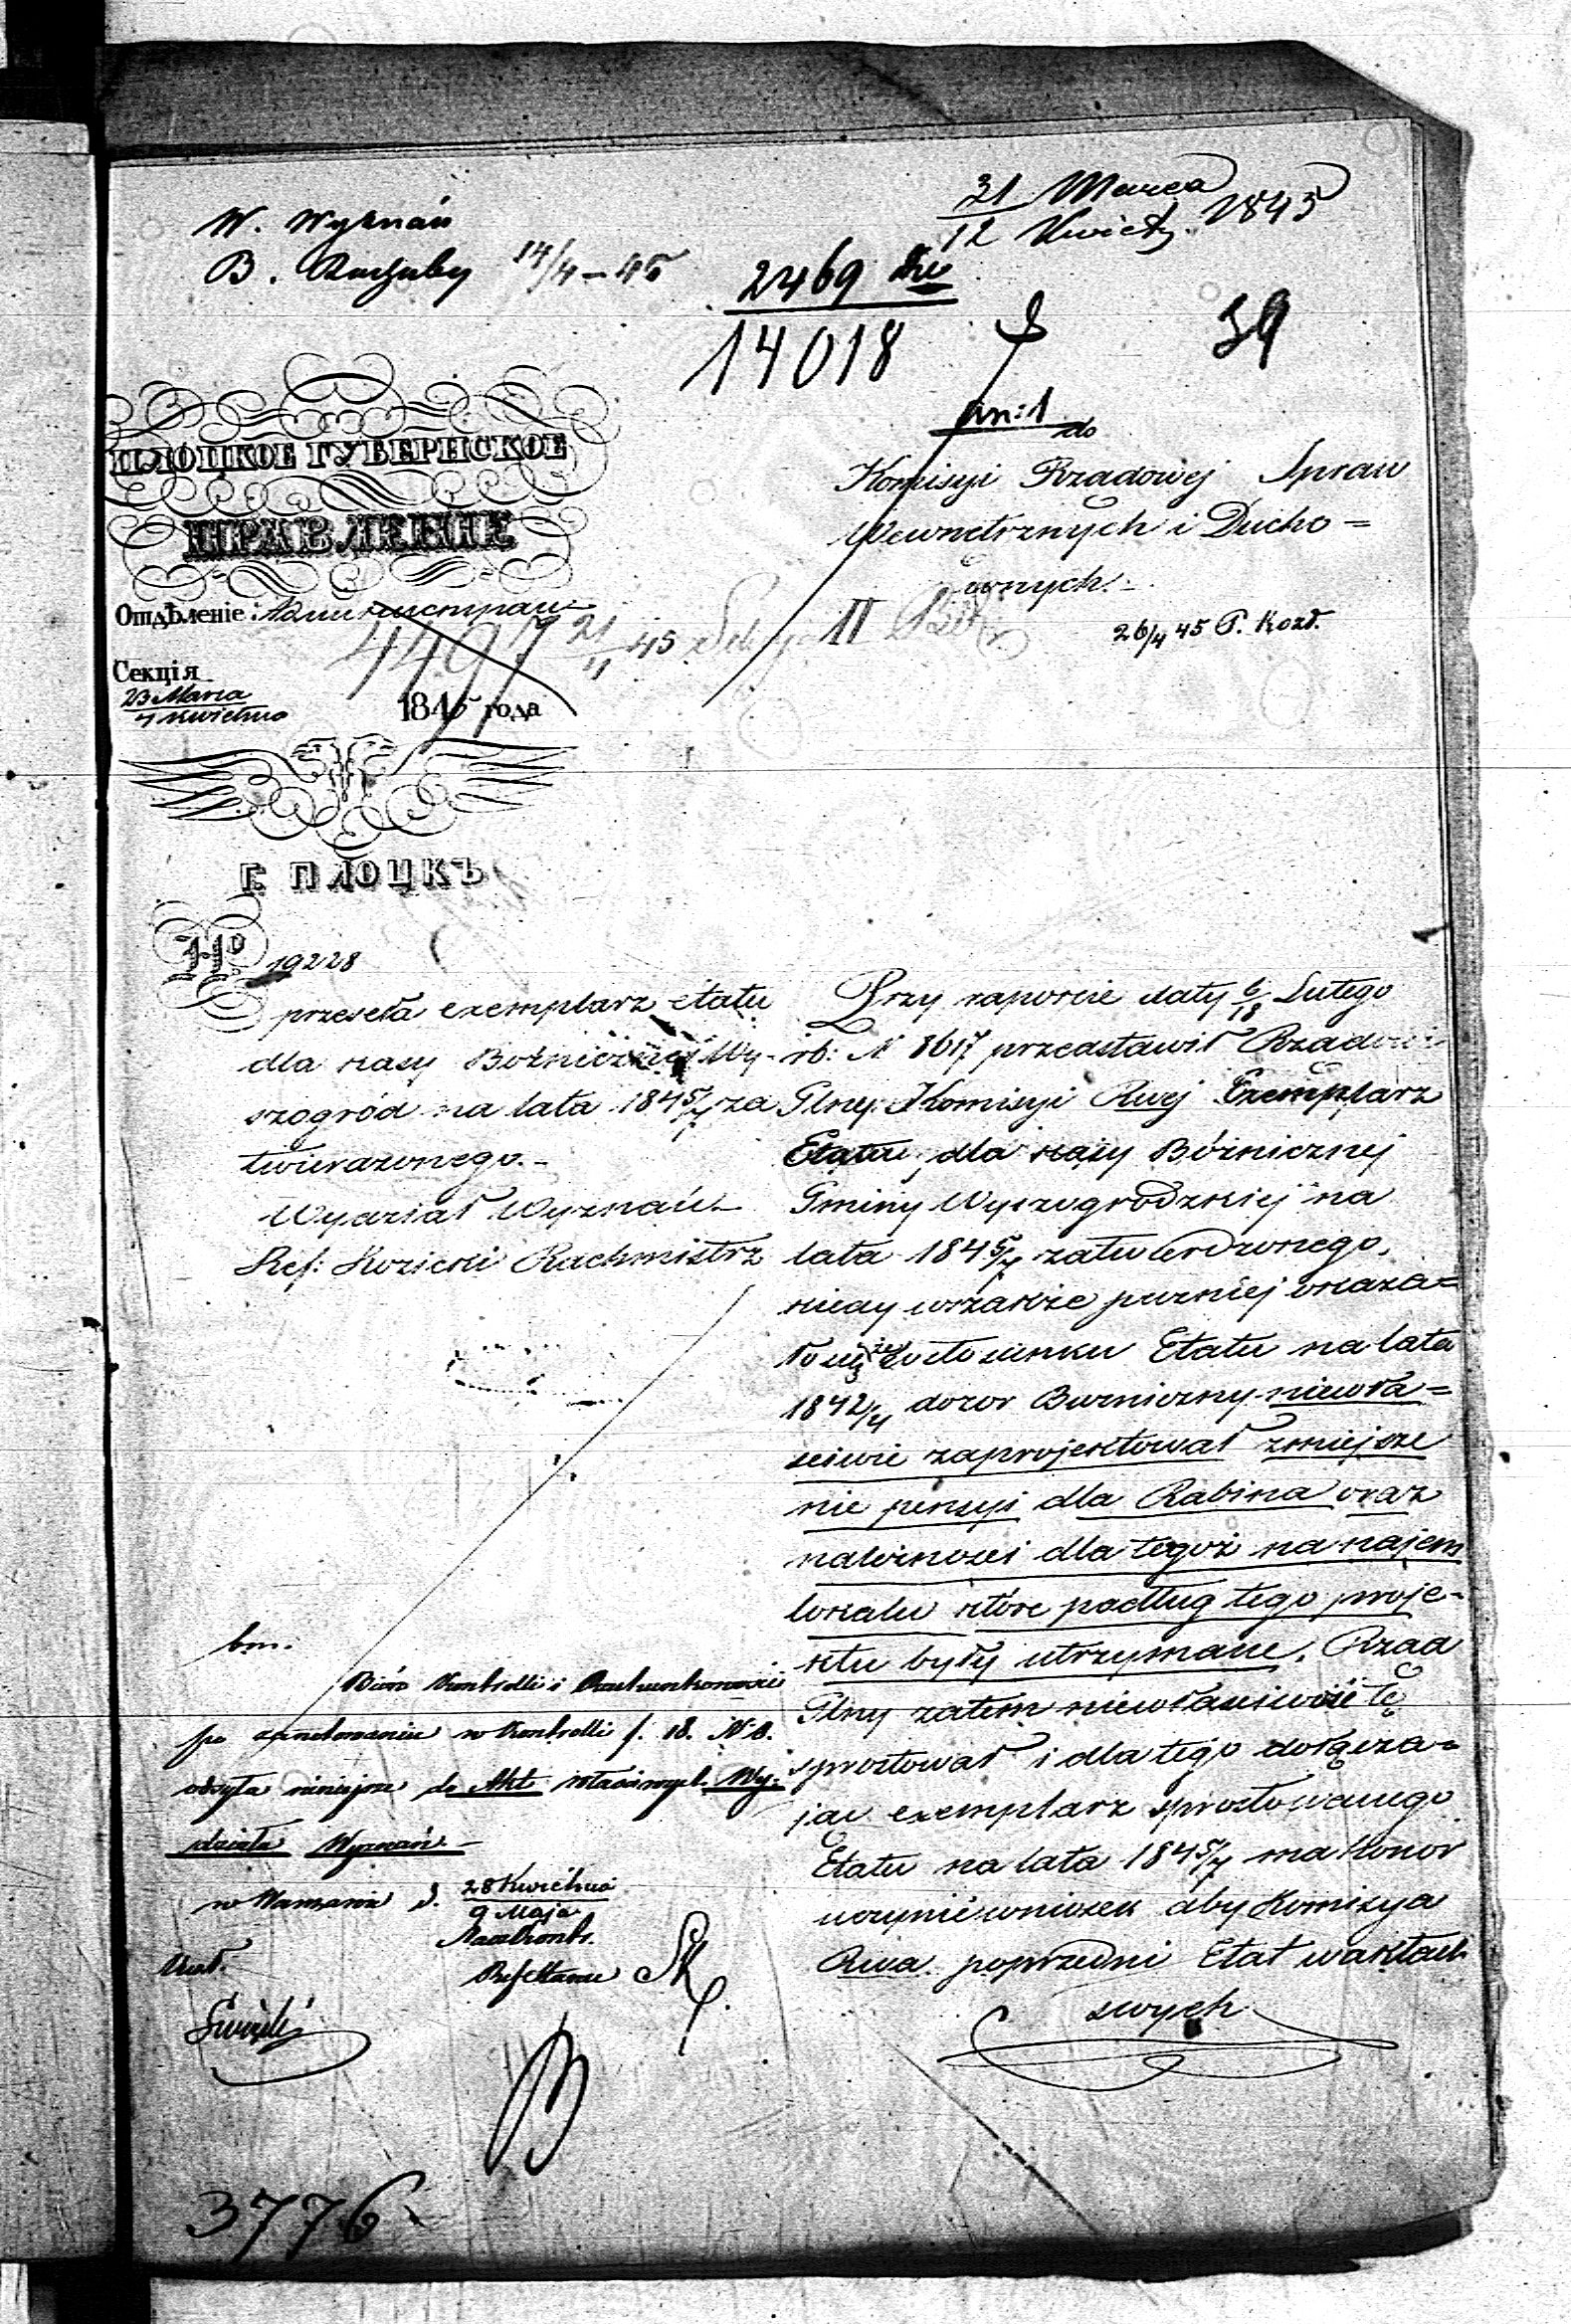 31 Marca
12 Kwietn. 1845
W. Wyznań
B. Rachuby 14/4 - 45
2469
14018
39
an: 1
do
Komisyi Rządowej Spraw
Wewnetrznych i Ducho=
wnych.-
26/4 45 P. Kozł.
ПЛОЦКОЕ ГУБЕРНСКОЕ
ПРАВЛЕНІЕ
Отдѣленіе: Администрац
4497 21/4 45 II
Секція
23 Marca
4 Kwietnia
1845 года
Г. ПЛОЦКЪ
Nº 19228
przeseła exemplarz etatu
dla kasy Bożnicznej Wy-
szogród na lata 1845/7 za
twierdzonego.-
Wydział Wyznań.-
Ref: Kozicki Rachmistrz
Przy raporcie daty 6/18 Lutego
rb: N 8617 przedstawił Rząd
Glny Komisyi Rwej Exemplarz
Etatu dla kasy Bóżnicznej
Gminy Wyszogrodzkiej na
lata 1845/7 zatwierdzonego,
kiedy wszakże pozniej okaza=
ło się że w stosunku Etatu na lata
1842/4 dozor Bużniczny niewła=
sciwie zaprojektował zmiejsze
nie pensyi dla Rabina oraz
należności dla tegoż na najem
lokalu które podług tego proje-
ktu były utrzymane. Rząd
Glny zatem niewłaściwość tę
sprostował i dla tego dołącza=
jąc exemplarz sprostowanego
Etatu na lata 1845/7 ma honor
uczynić wniosek aby Komisya
Rwa poprzedni Etat w aktach
swych
bm.
Bióro Kontrolli i Rachunkowości
po zanotowaniu w Kontrolli f. 18. N 8.
odsyła niniejsze do Akt właściwych Wy-
działu Wyznań.-
w Warszawie d. 28 Kwietnia
9 Maja
Naczkontr.
3776